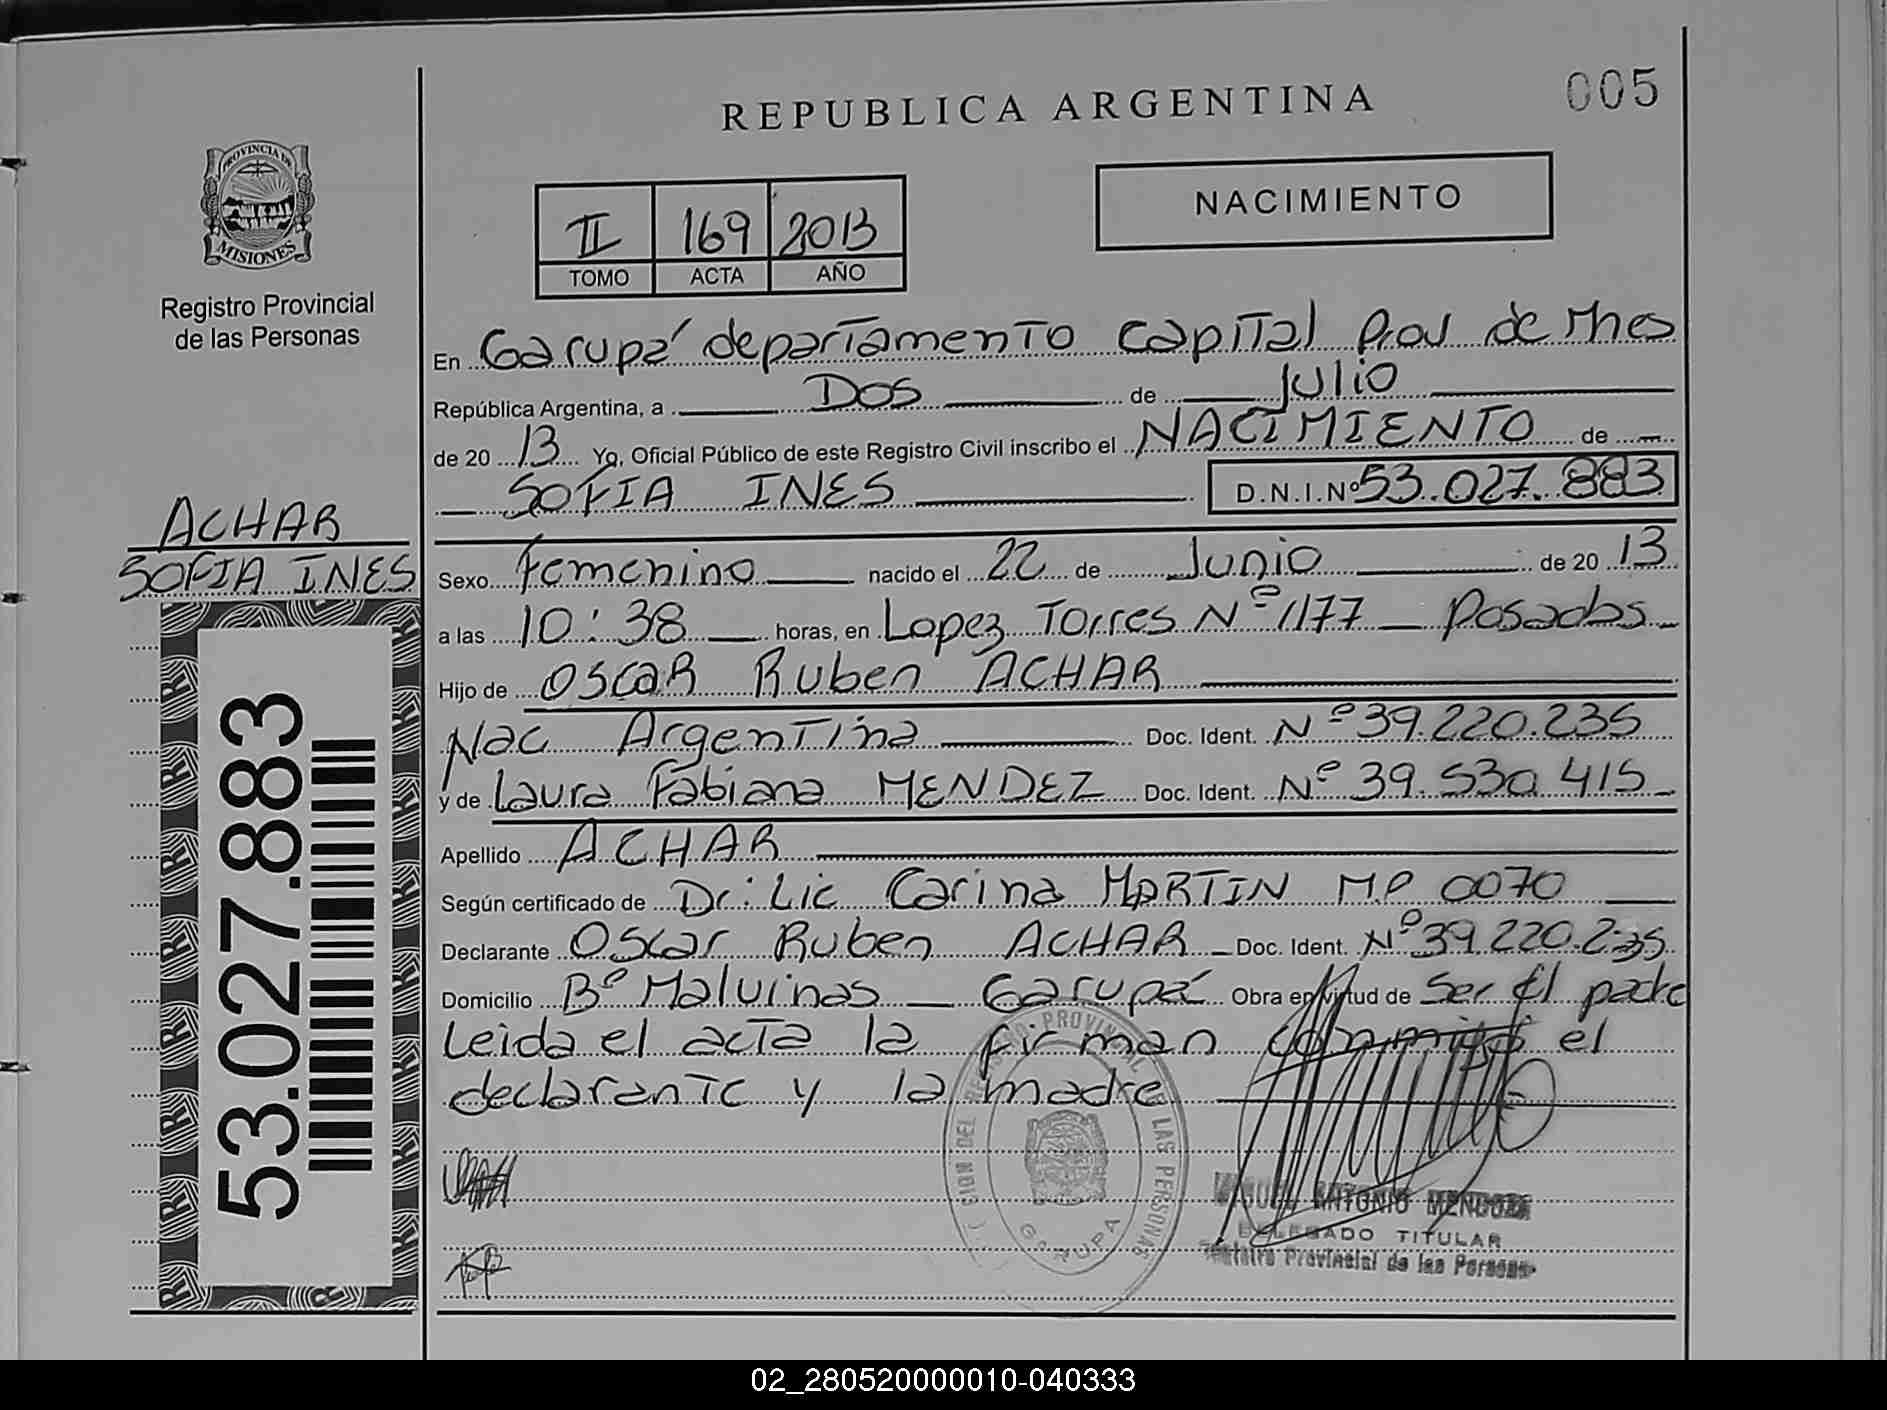 REPUBLICA ARGENTINA
005
PROVINCIA DE
MISIONES
Registro Provincial
de las Personas
NACIMIENTO
II 169 2013
TOMO ACTA AÑO
En Garupá departamento Capital Prov de Mnes
República Argentina, a Dos de Julio
de 2013 Yo, Oficial Público de este Registro Civil inscribo el NACIMIENTO de
SOFIA INES D.N.I.Nº 53.027.883
ACHAR
SOFIA INES
53.027.883
Sexo Femenino nacido el 22 de Junio de 2013
a las 10:38 horas, en Lopez Torres Nº 1177 – Posadas
Hijo de OSCAR Ruben ACHAR
Nac Argentina Doc. Ident. Nº 39.220.235
y de Laura Fabiana MENDEZ Doc. Ident. Nº 39.530.415
Apellido ACHAR
Según certificado de Dr: Lic Carina MARTIN M.P 0070
Declarante Oscar Ruben ACHAR Doc. Ident. Nº 39.220.235
Domicilio Bº Malvinas – Garupá Obra en virtud de Ser El padre
Leida el acta la firman conmigo el
declarante y la madre
PROVINCIAL DE LAS PERSONAS
GARUPA
MIGUEL ANTONIO MENDOZA
DELEGADO TITULAR
Registro Provincial de las Personas
02_280520000010-040333